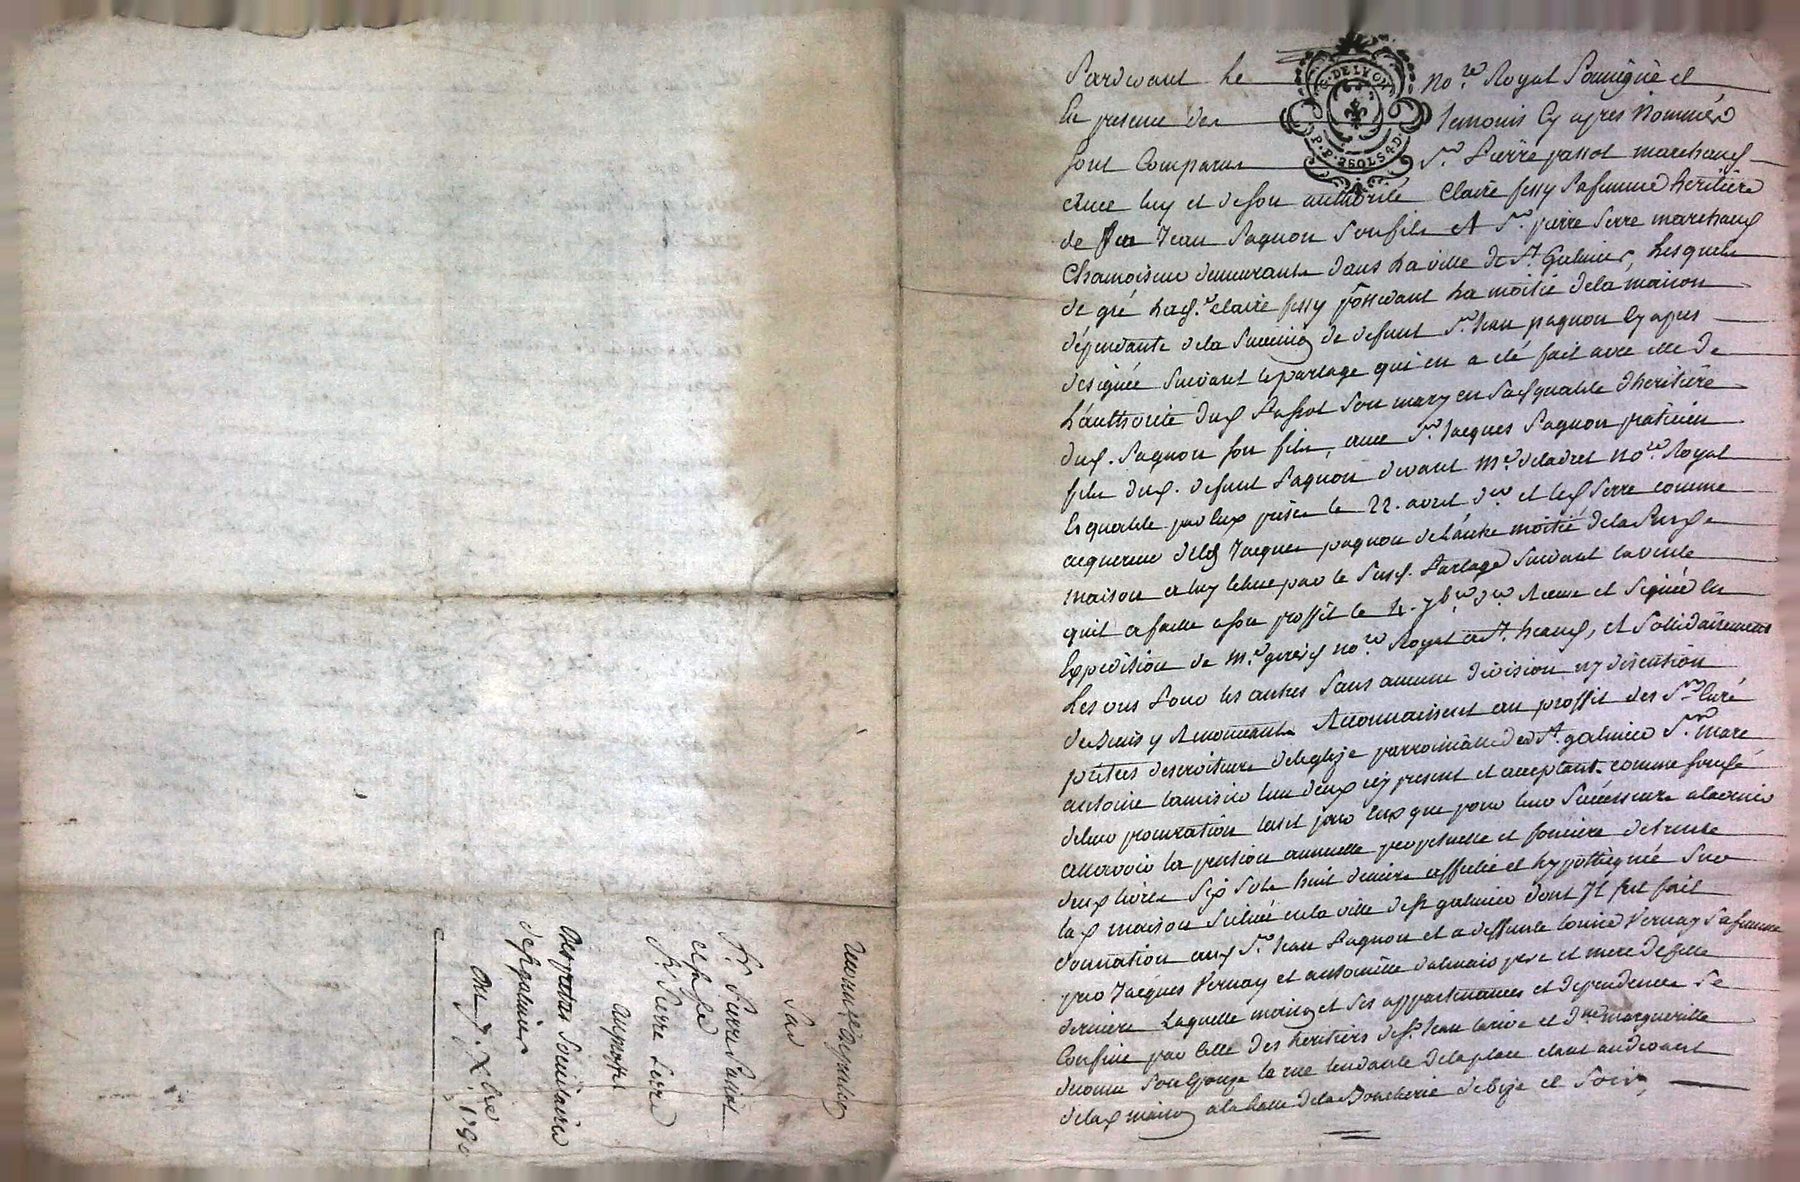 Pardevant Le no.re Royal Soussigné et
En presence des temoins Cy apres Nommés
sont Comparus Sr. Pierre passot marchand
avec luy et de son authorité Claire fessy sa femme heritiere
de feu Jean Pagnon son fils et Sr. pierre Serre marchand
Chamoiseur demeurants dans La ville de St Galmier, Lesquels
de gré Lad. Claire fessy possedant La moitié de la maison
dépendante de la Succession de defunt Sr. Jean pagnon Cy apres
designée Suivant le partage qui en a été fait avec elle de
L'authorité dud Passot Son mary en sad qualité d'heritière
dud. Pagnon son fils, avec Sr. Jacques Pagnon praticien
fils dud. defunt Pagnon devant Me. no.re Royal
le 22. avril d.er et led Serre comme
acquereur dud Jacques pagnon de L'autre moitié de la Susd
maison a luy echue par le Susd. Partage Suivant la vente
quil a passée a son proffit le 4. 7bre d.er Recue et Signée en
Expedition de Me. no.re Royal a St. heand, et Solidairement
Les uns pour les autres Sans aucune division ny discution
y Renonceants Reconnaissent au proffit des Srs. Curé
pretres societaires de leglize parroissialle de St. galmier Sr. marc
antoine lun deux icy present et acceptant comme fondé
de leur procuration tant pour Eux que pour leurs Successeurs a lavenir
assavoir la pension annuelle perpetuelle et fonciere de trente
deux livres Six Sols huit deniers affectée et hypothequée Sur
lad maison Scituée en la ville de St galmier dont Jl fut fait
donnation aud Sr. Jean Pagnon et a deffunte Louise Vernay Sa femme
par Jacques Vernay et antoinette pere et mere de cette
derniere Laquelle maison et Ses appartenances et dependences Se
Confine par Celle des heritiers de Sr. Jean et d.lle margueritte
la rue tendante de la place etant audevant
de lad maison a la Halle de la Boucherie de bize et Soir,
G. DE LYON
P. P. 2 SOLS 4 D.
Reconnaissance
Par
Sr. Pierre Passot
Sr. Pierre Serre
Au proffit
Des pretres Societaires
de St galmier
Du 7. Xbre